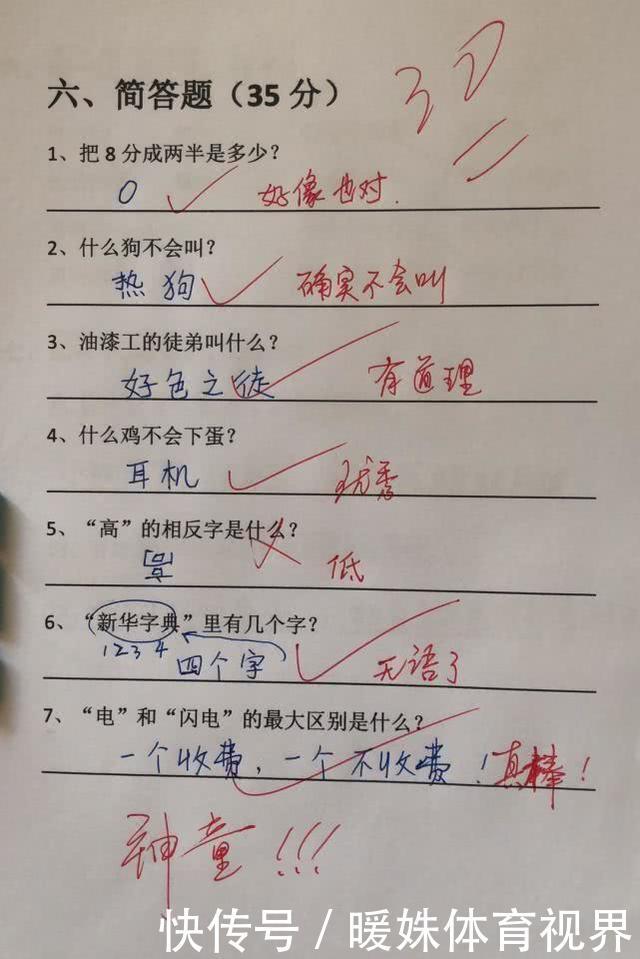 30
六、简答题（35 分）
1、把 8 分成两半是多少？
0 好像也对.
2、什么狗不会叫？
热狗 确实不会叫
3、油漆工的徒弟叫什么？
好色之徒 有道理
4、什么鸡不会下蛋？
耳机 优秀
5、“高”的相反字是什么？
低
6、“新华字典”里有几个字？
1 2 3 4 四个字 无语了
7、“电”和“闪电”的最大区别是什么？
一个收费，一个不收费！真棒！
神童!!!
快传号 / 暖姝体育视界